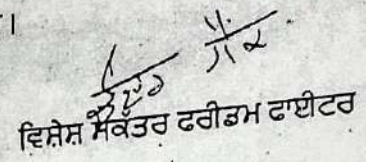 ।
ਵਿਸ਼ੇਸ਼ ਸਕੱਤਰ ਫਰੀਡਮ ਫਾਈਟਰ